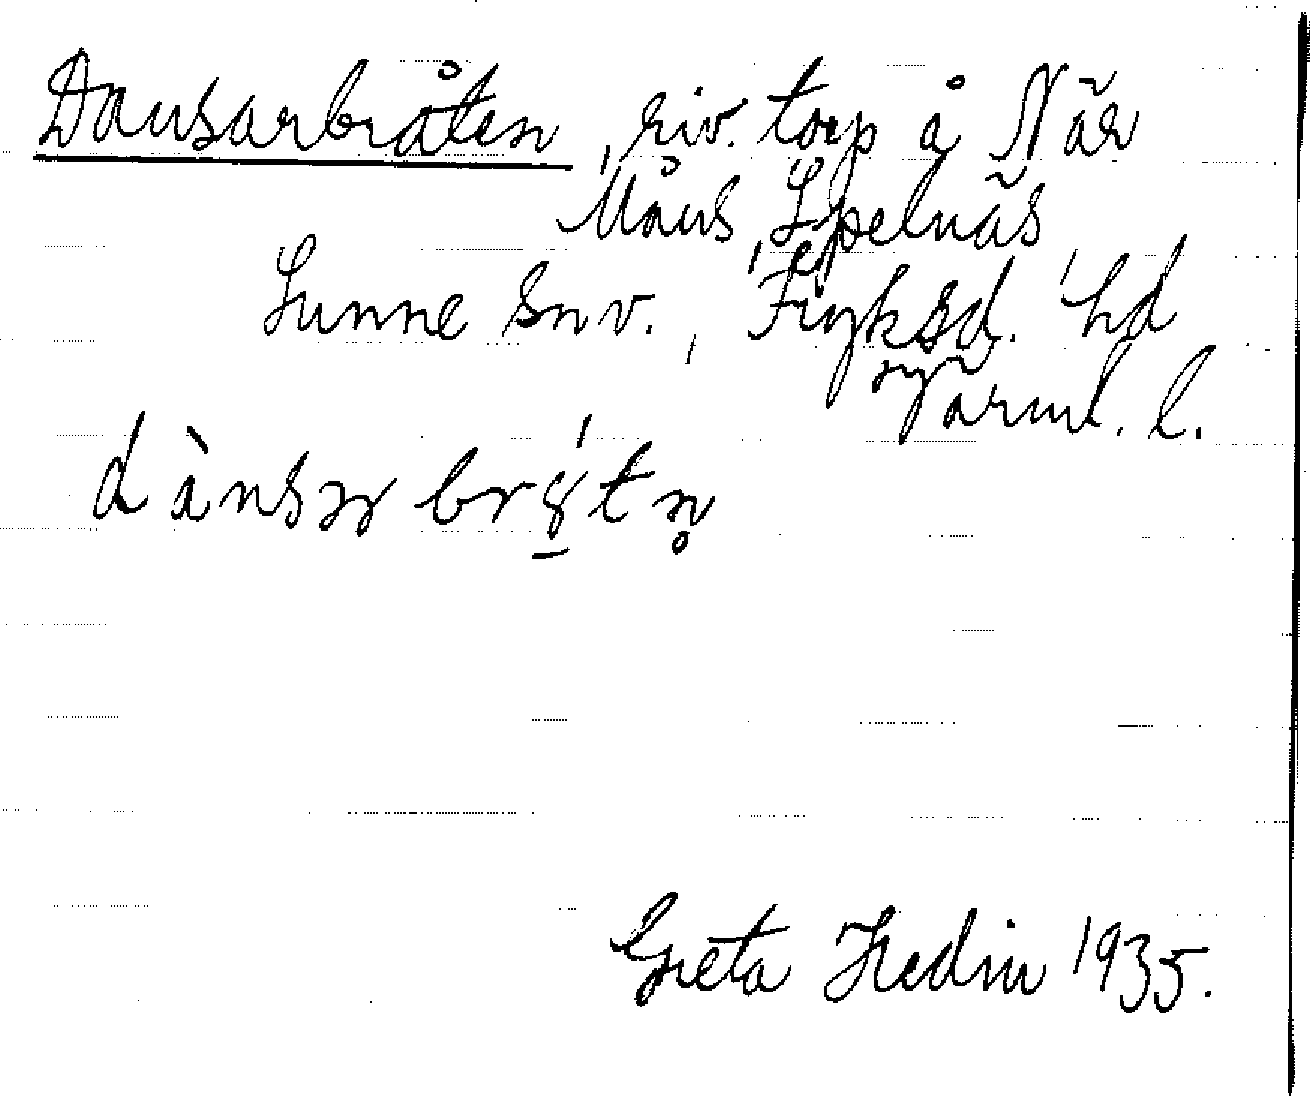 Dansarbråten, riv. torp å När
Måns, Spelnäs,
Sunne snv., Fryksd. hd
Värml. l.
dànsar br
Greta Hedin 1935.